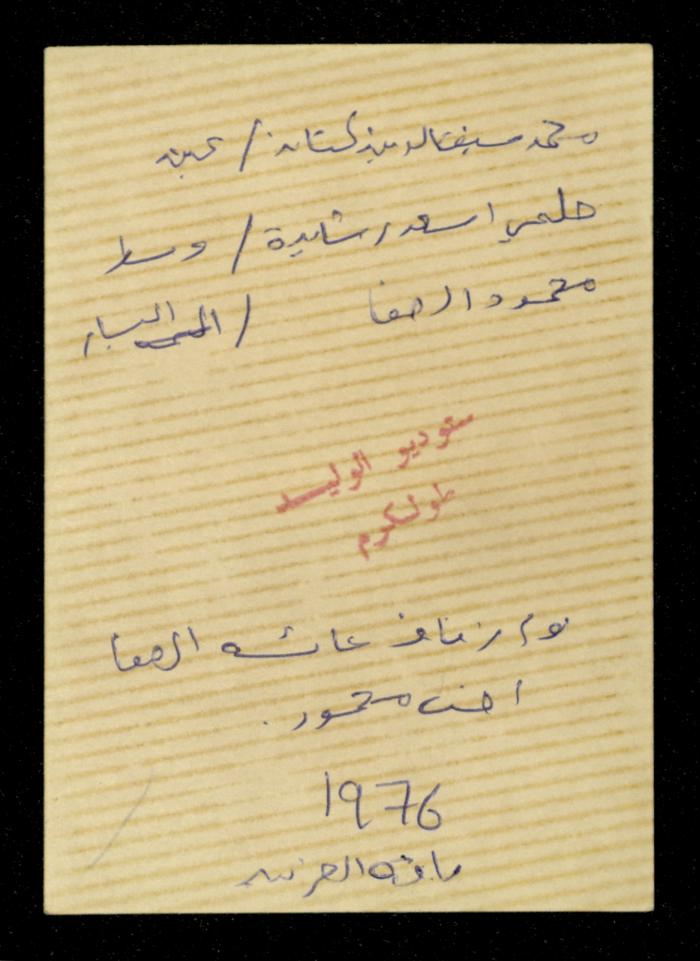 محمد سيف الدين كتانه / يمين
حلمي اسعد رشايدة / وسط
محمود الصفا / اليسار
ستوديو الوليد
طولكرم
يوم زفاف عائشه الصفا
اخت محمود.
1976
باقه الغربيه